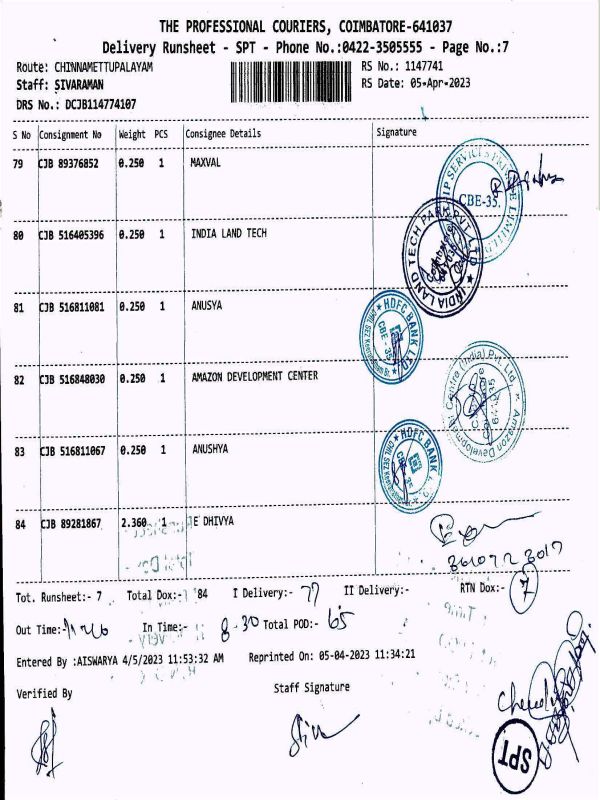 THE PROFESSIONAL COURIERS, COIMBATORE-641037
Delivery Runsheet - SPT - Phone No.:0422-3505555 - Page No.:7
Route: CHINNAMETTUPALAYAM RS No.: 1147741
Staff: SIVARAMAN RS Date: 05-Apr-2023
DRS No.: DCJB114774107
S No Consignment No Weight PCS Consignee Details Signature
79 CJB 89376852 0.250 1 MAXVAL
CBE-35.
80 CJB 516405396 0.250 1 INDIA LAND TECH
INDIA LAND TECH PARK PVT LTD
81 CJB 516811081 0.250 1 ANUSYA
HDFC BANK LTD
CBE - 35
82 CJB 516848030 0.250 1 AMAZON DEVELOPMENT CENTER
Amazon Development Centre (India) Pvt. Ltd.
83 CJB 516811067 0.250 1 ANUSHYA
HDFC BANK LTD
84 CJB 89281867 2.360 1 E DHIVYA
Tot. Runsheet:- 7 Total Dox:- 84 I Delivery:- 77 II Delivery:- RTN Dox:- 7
Out Time:- In Time:- 8-30 Total POD:- 65
Entered By :AISWARYA 4/5/2023 11:53:32 AM Reprinted On: 05-04-2023 11:34:21
Verified By Staff Signature
SPT